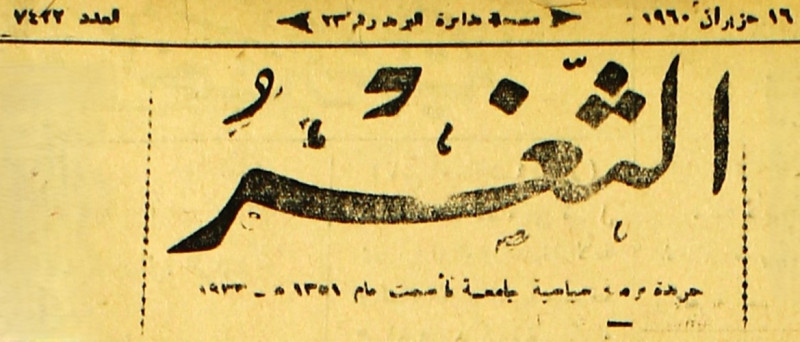 ١٦ حزيران ١٩٦٠ مسجلة بدائرة البريد رقم ٢٣ العدد ٧٤٢٢
الثَّغْرُ
جريدة عربية سياسية جامعة تأسست عام ١٣٥١ ه ـ ١٩٣٣